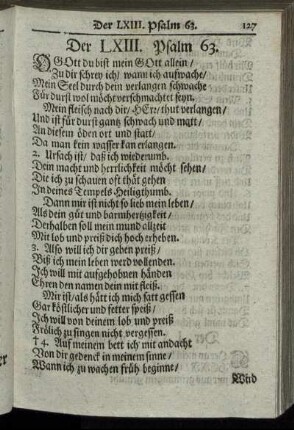 Der LXIII. Psalm 63. 127
Der LXIII. Psalm 63.
O GOtt du bist mein GOtt allein/
Zu dir schrey ich/ wann ich aufwache/
Mein Seel durch dein verlangen schwache
Für durst wol möcht verschmachtet seyn.
Mein fleisch nach dir/ HErr/ thut verlangen/
Und ist für durst gantz schwach und matt/
An diesem öden ort und statt/
Da man kein wasser kan erlangen.
2. Ursach ist/ daß ich wiederumb.
Dein macht und herrlichkeit möcht sehen/
Die ich zu schauen oft thät gehen
In deines Tempels Heiligthumb.
Dann mir ist nicht so lieb mein leben/
Als dein güt und barmhertzigkeit/
Derhalben soll mein mund allzeit
Mit lob und preiß dich hoch erheben.
3. Also will ich dir geben preiß/
Biß ich mein leben werd vollenden.
Ich will mit aufgehobnen händen
Ehren den namen dein mit fleiß.
Mir ist/ als hätt ich mich satt gessen
Gar köstlicher und fetter speiß/
Ich will von deinem lob und preiß
Frölich zu singen nicht vergessen.
† 4. Auf meinem bett ich mit andacht
Von dir gedenck in meinem sinne/
Wann ich zu wachen früh beginne/
Und